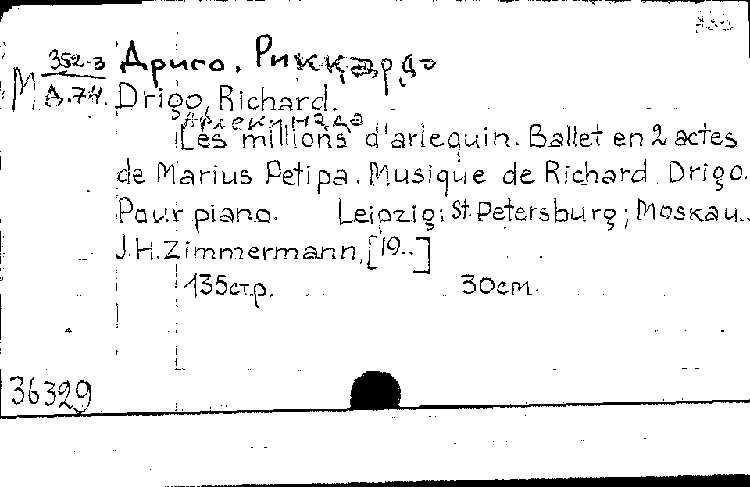 352-3 Дриго, Риккардо
М Д.74. Drigo, Richard.
"Арлекинада
Les millions" d'arlequin. Ballet en 2 actes
de Marius Petipa. Musique de Richard Drigo.
Pour piano. Leipzig; St. Petersburg; Moskau..
J.H. Zimmermann, [19..]
135стр. 30см.
36329